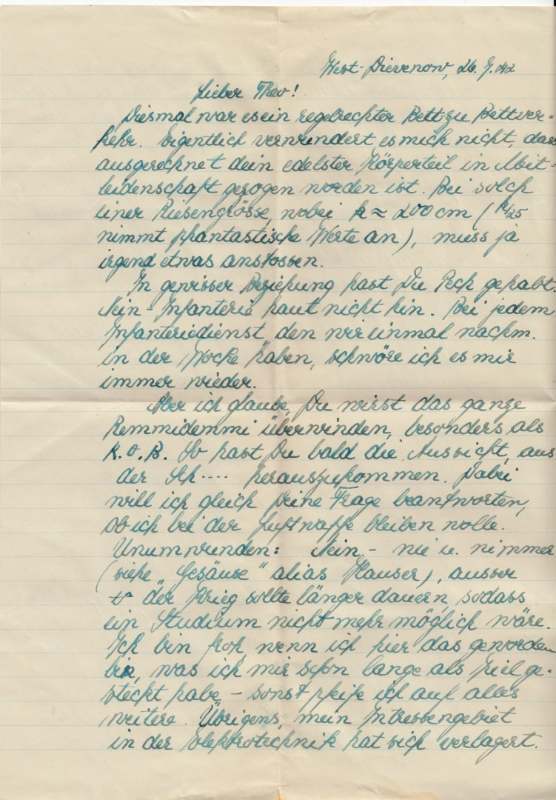 West-Dievenow, 26. 9. 42.
Lieber Theo!
Diesmal war es ein regelrechter Bett zu Bettver-
kehr. Eigentlich verwundert es mich nicht, dass
ausgerechnet dein edelster Körperteil in Mit-
leidenschaft gezogen worden ist. Bei solch
einer Riesengrösse, wobei h ≈ 200 cm (
nimmt phantastische Werte an), muss ja
irgend etwas anstossen.
In gewisser Beziehung hast Du Pech gehabt.
Nein - Infanterie haut nicht hin. Bei jedem
Infanteriedienst den wir einmal nachm.
in der Woche haben, schwöre ich es mir
immer wieder.
Aber ich glaube, Du wirst das ganze
Remmidemmi überwinden, besonders als
K.O.B. So hast Du bald die Aussicht, aus
der Sch.... herauszukommen. Dabei
will ich gleich Deine Frage beantworten,
ob ich bei der Luftwaffe bleiben wolle.
Unumwunden: Nein, - nie u. nimmer
(siehe „Gesäuse" alias Hauser), ausser
der Krieg sollte länger dauern, sodass
ein Studium nicht mehr möglich wäre.
Ich bin froh wenn ich hier das geworden
bin, was ich mir schon lange als Ziel ge-
steckt habe - sonst pfeife ich auf alles
weitere. Übrigens, mein Intressengebiet
in der Elektrotechnik hat sich verlagert.